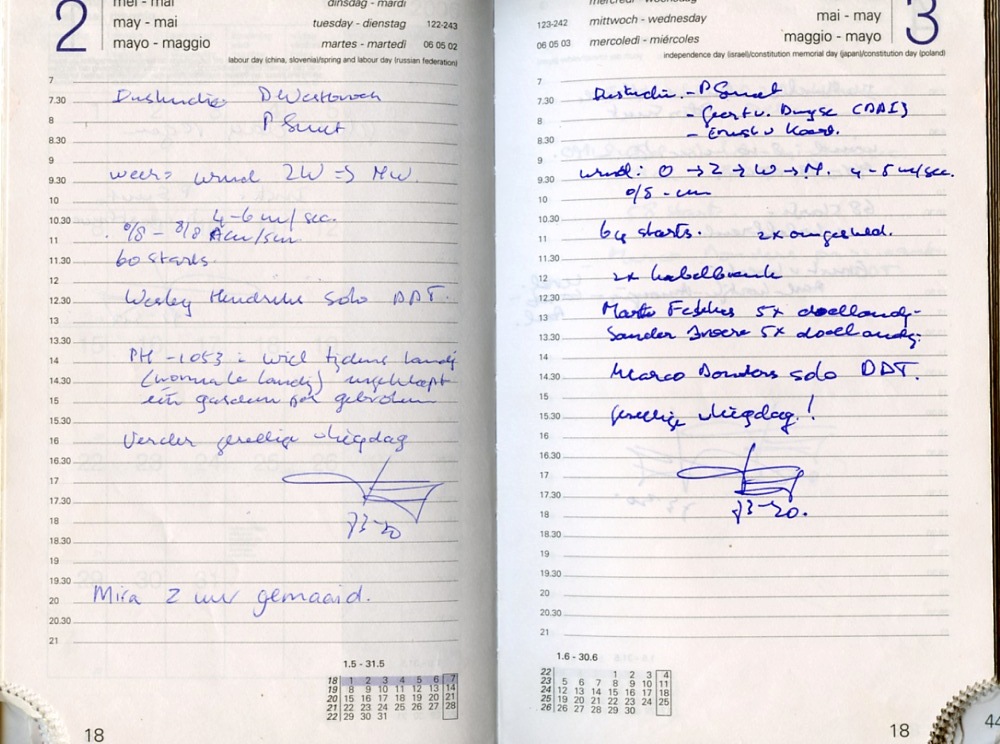 2
mei - mai
dinsdag - mardi
may - mai
tuesday - dienstag
122-243
mayo - maggio
martes - martedi
06 05 02
labour day (china, slovenia)/spring and labour day (russian federation)
7
7.30
8
P Smut
8.30
9
weer:
wind ZW => NW.
9.30
10
4-6 m/sec.
10.30
0/8 - 8/8
11
60 starts.
11.30
12
Wesley Hendriks solo DDT.
12.30
13
13.30
PH - 1053 : wiel tijdens landg
14
(normale landg) ingeklapt
14.30
één gasdemper gebroken
15
15.30
16
Verder gezellige vliegdag
16.30
17
17.30
18
18.30
19
19.30
Mira 2 uur gemaaid.
20
20.30
21
1.5 - 31.5
18 1 2 3 4 5 6 7
19 8 9 10 11 12 13 14
20 15 16 17 18 19 20 21
21 22 23 24 25 26 27 28
22 29 30 31
18
3
mercredi - mercoledi
123-242
mittwoch - wednesday
mai - may
06 05 03
mercoledi - miércoles
maggio - mayo
independence day (israel)/constitution memorial day (japan)/constitution day (poland)
7
- P Smut
7.30
8
8.30
9
wind: O -> Z -> W -> N. 4-5 m/sec.
9.30
0/8 -
10
10.30
64 starts.
11
11.30
2x kabelbreuk
12
12.30
5x doellandg.
13
Sander 5x doellandg.
13.30
14
Marco Donders solo DDT.
14.30
15
gezellige vliegdag!
15.30
16
16.30
17
17.30
18
18.30
19
19.30
20
20.30
21
1.6 - 30.6
22 1 2 3 4
23 5 6 7 8 9 10 11
24 12 13 14 15 16 17 18
25 19 20 21 22 23 24 25
26 26 27 28 29 30
18
44